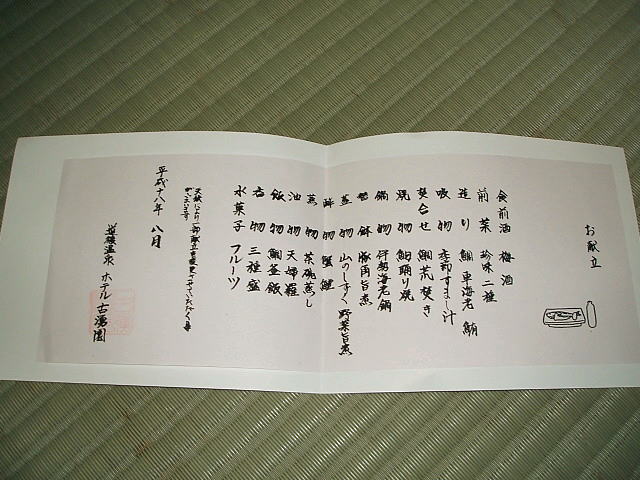 お献立
食前酒 梅酒
前菜 珍味二種
造り 鯛 車海老 鮪
吸物 季節すまし汁
焚合せ 鯛荒焚き
焼物 鮑踊り焼
鍋物 伊勢海老鍋
鉢 豚角旨煮
蓋物 山のしずく 野菜旨煮
酢物 蟹 鱧
蒸物 茶碗蒸し
油物 天婦羅
飯物 鯛釜飯
香物 三種盛
水菓子 フルーツ
天候により一部献立を変更させていただく事
がございます
平成十八年 八月
道後温泉 ホテル古湧園